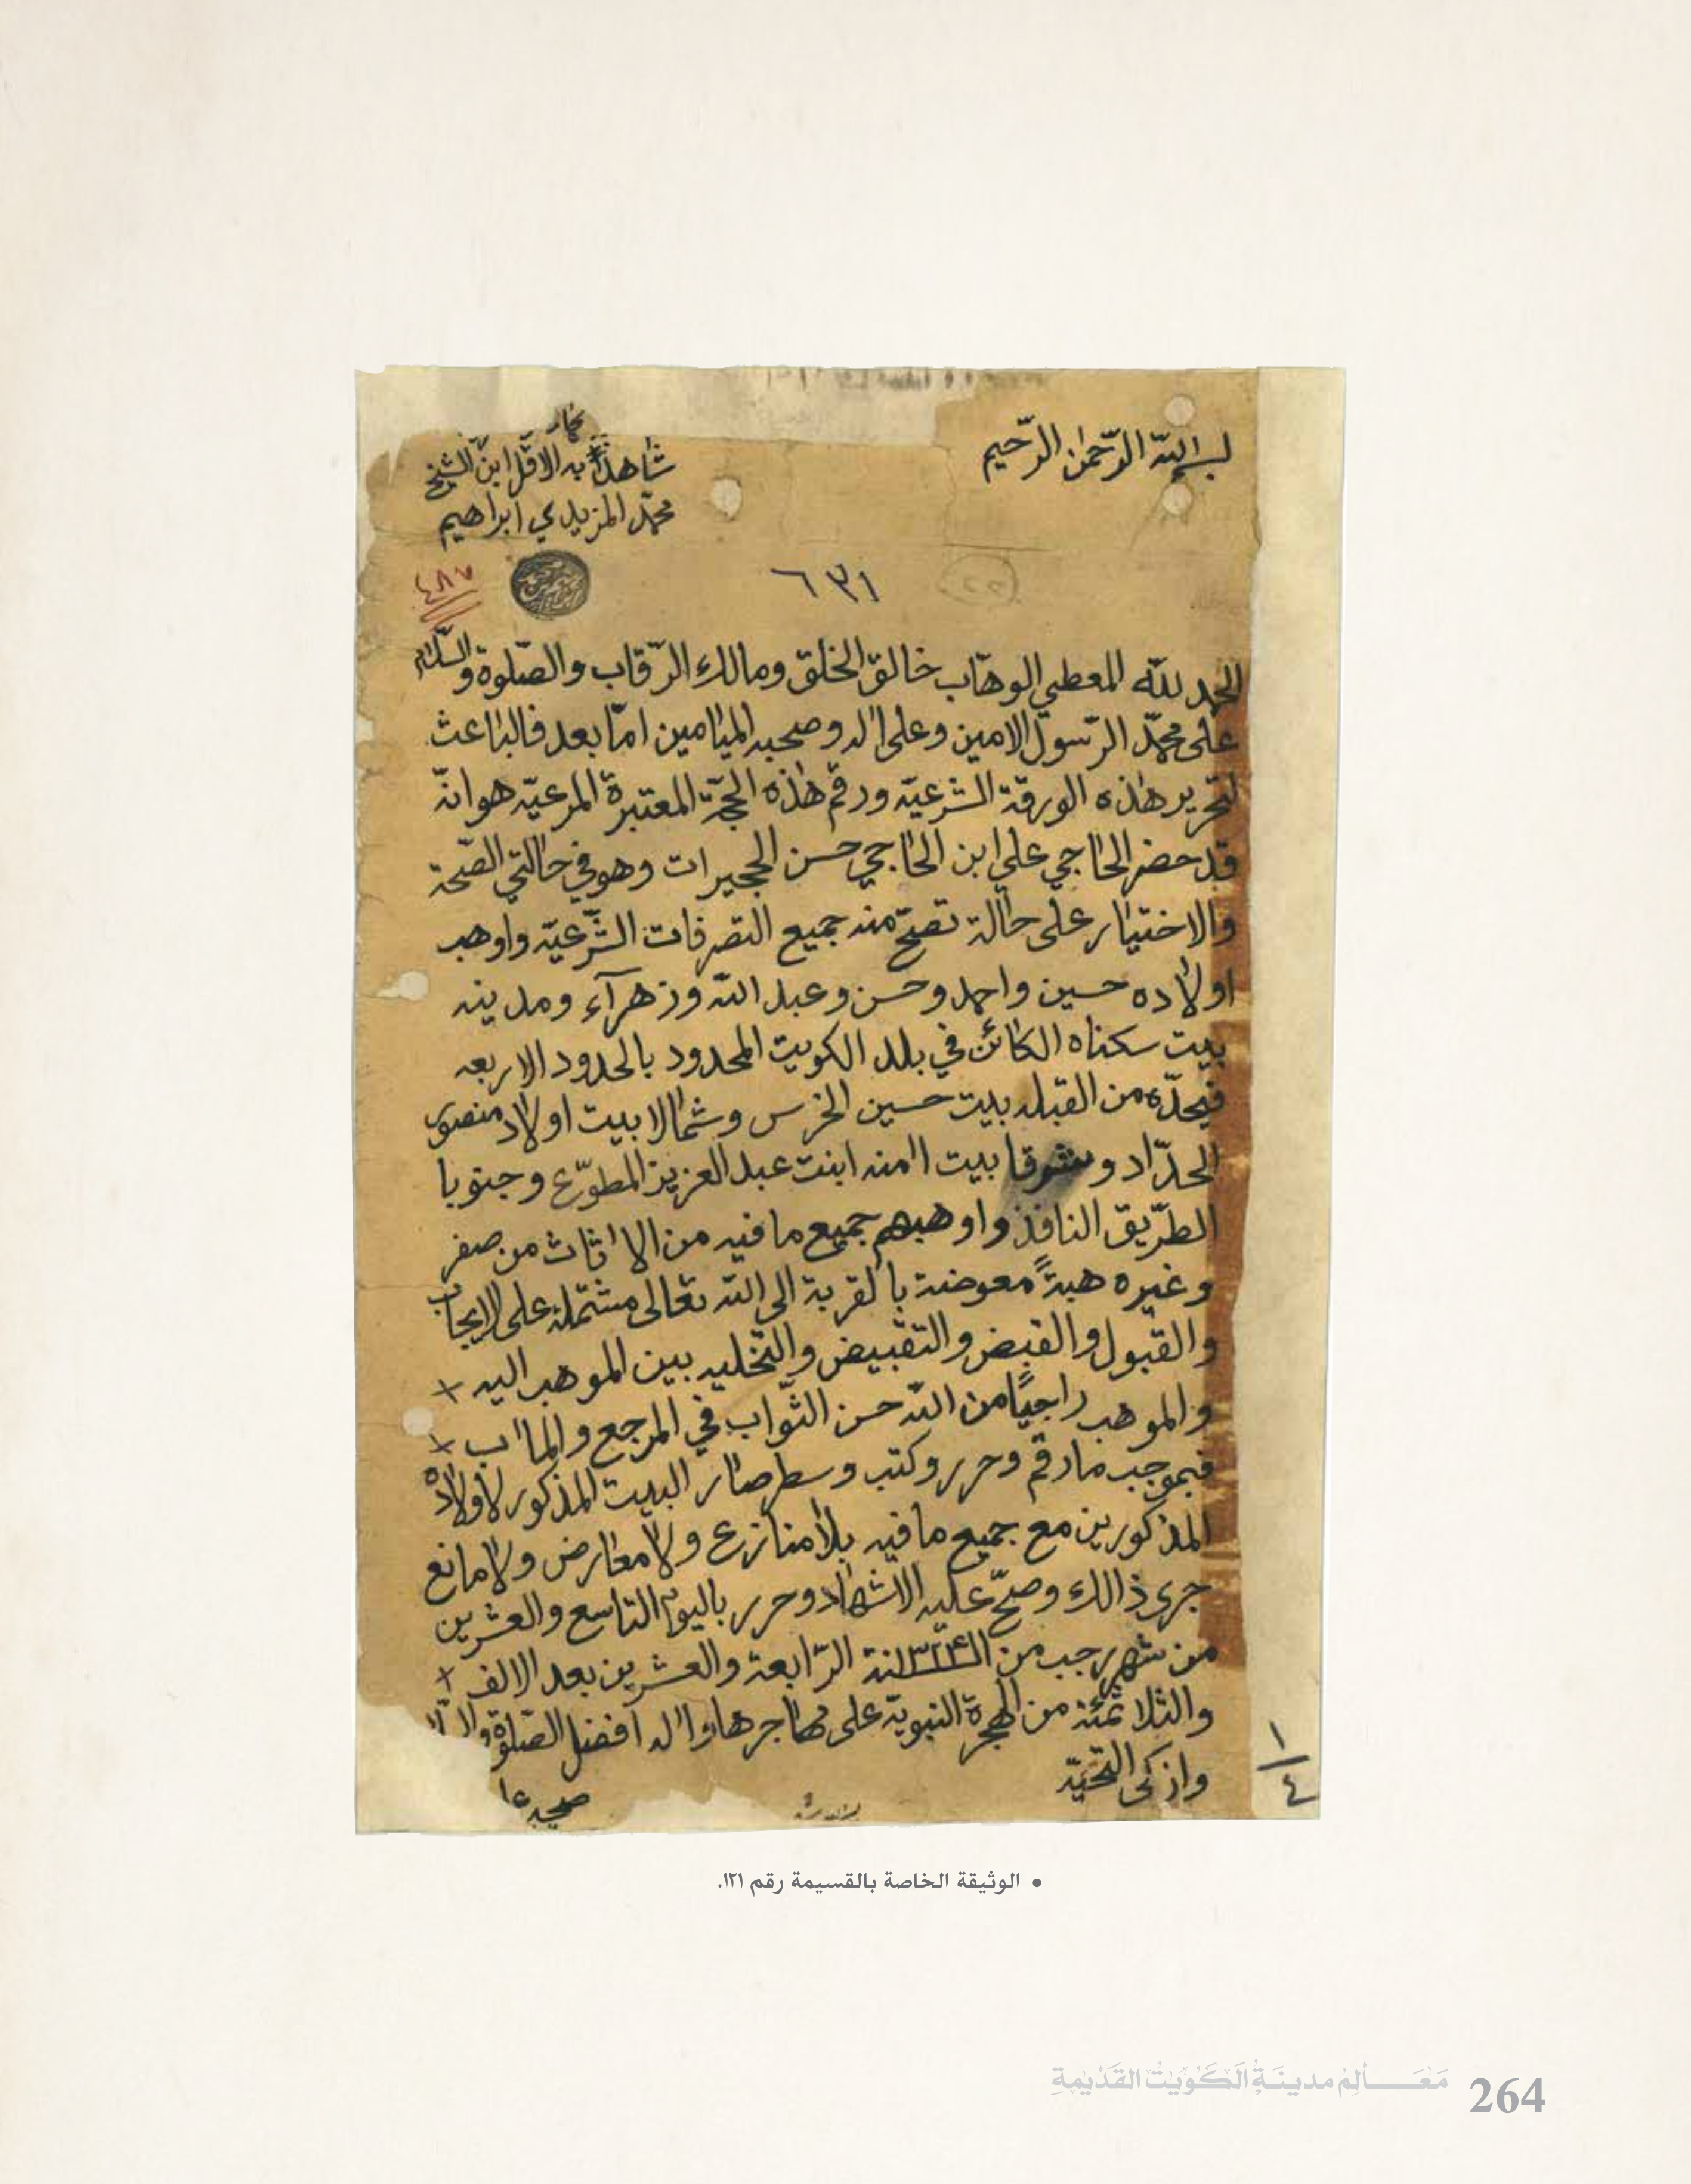 بسم الله الرحمن الرحيم
شاهداً به الاقل ابن الشيخ
محمد المزيدي ابراهيم
٤٨٧
٦٣١
الحمد لله المعطي الوهّاب خالق الخلق ومالك الرّقاب والصّلوة والسّلام
على محمّد الرّسول الامين وعلى اله وصحبه الميامين امّا بعد فالباعث
لتحرير هذه الورقة الشرعيّة ورقم هذه الحجّة المعتبرة المرعيّه هو انّه
قد حضر الحاجي علي ابن الحاجي حسن الحجيرات وهو في حالتي الصّحة
والاختيار على حالة تصحّ منه جميع التصرفات الشّرعيّه واوهب
اولاده حسين واحمد وحسن وعبد الله وزهرآء ومدينه
بيت سكناه الكائن في بلد الكويت المحدود بالحدود الاربعه
فيحدّه من القبله بيت حسين الخرس وشمالا بيت اولاد منصور
الحدّاد وشرقا بيت امنه ابنت عبد العزيز المطوّع وجنوبا
الطّريق النافذ واوهبهم جميع ما فيه من الااثاث من صفر
وغيره هبةً معوضة بالقربة الى الله تعالى مشتملة على الايجاب
والقبول والقبض والتقبيض والتّخليه بين الموهب اليه ×
والموهب راجيًا من الله حسن الثّواب في المرجع والمااب ×
فبموجب ما رقم وحرر وكتب وسطر صار البيت المذكور لاولاده
المذكورين مع جميع ما فيه بلا منازع ولا معارض ولا مانع
جرى ذالك وصحّ عليه الاشهاد وحرر باليوم التاسع والعشرين
من شهر رجب من السنة ١٣٢٤ الرّابعة والعشرين بعد الالف ×
والثلاثمئة من الهجرة النبويّة على مهاجرها واله افضل الصّلوة
وازكى التّحيّة
صحيح
١
٤
• الوثيقة الخاصة بالقسيمة رقم ١٢١.
مَعَالِمُ مدينَةِ الكُوَيْتِ القَدْيمةِ 264